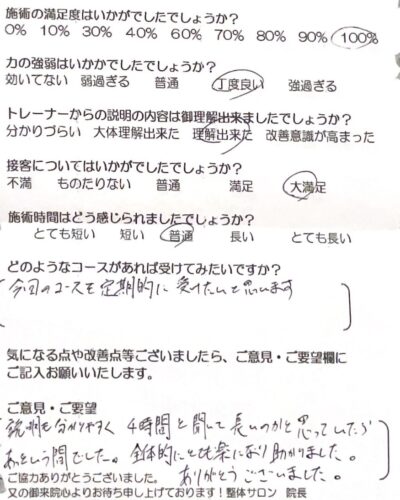 施術の満足度はいかがでしたでしょうか?
0% 10% 30% 40% 60% 70% 80% 90% 100%
力の強弱はいかかでしたでしょうか?
効いてない 弱過ぎる 普通 丁度良い 強過ぎる
トレーナーからの説明の内容は御理解出来ましたでしょうか?
分かりづらい 大体理解出来た 理解出来た 改善意識が高まった
接客についてはいかがでしたでしょうか?
不満 ものたりない 普通 満足 大満足
施術時間はどう感じられましたでしょうか?
とても短い 短い 普通 長い とても長い
どのようなコースがあれば受けてみたいですか?
今回のコースを定期的に受けたいと思います
気になる点や改善点等ございましたら、ご意見・ご要望欄に
ご記入お願いいたします。
ご意見・ご要望
説明も分かりやすく 4時間と聞いて長いのかと思っていたら
あっという間でした。全体的にとても楽になり助かりました。
ご協力ありがとうございました。 ありがとうございました。
又の御来院心よりお待ち申し上げております!整体サロン 院長